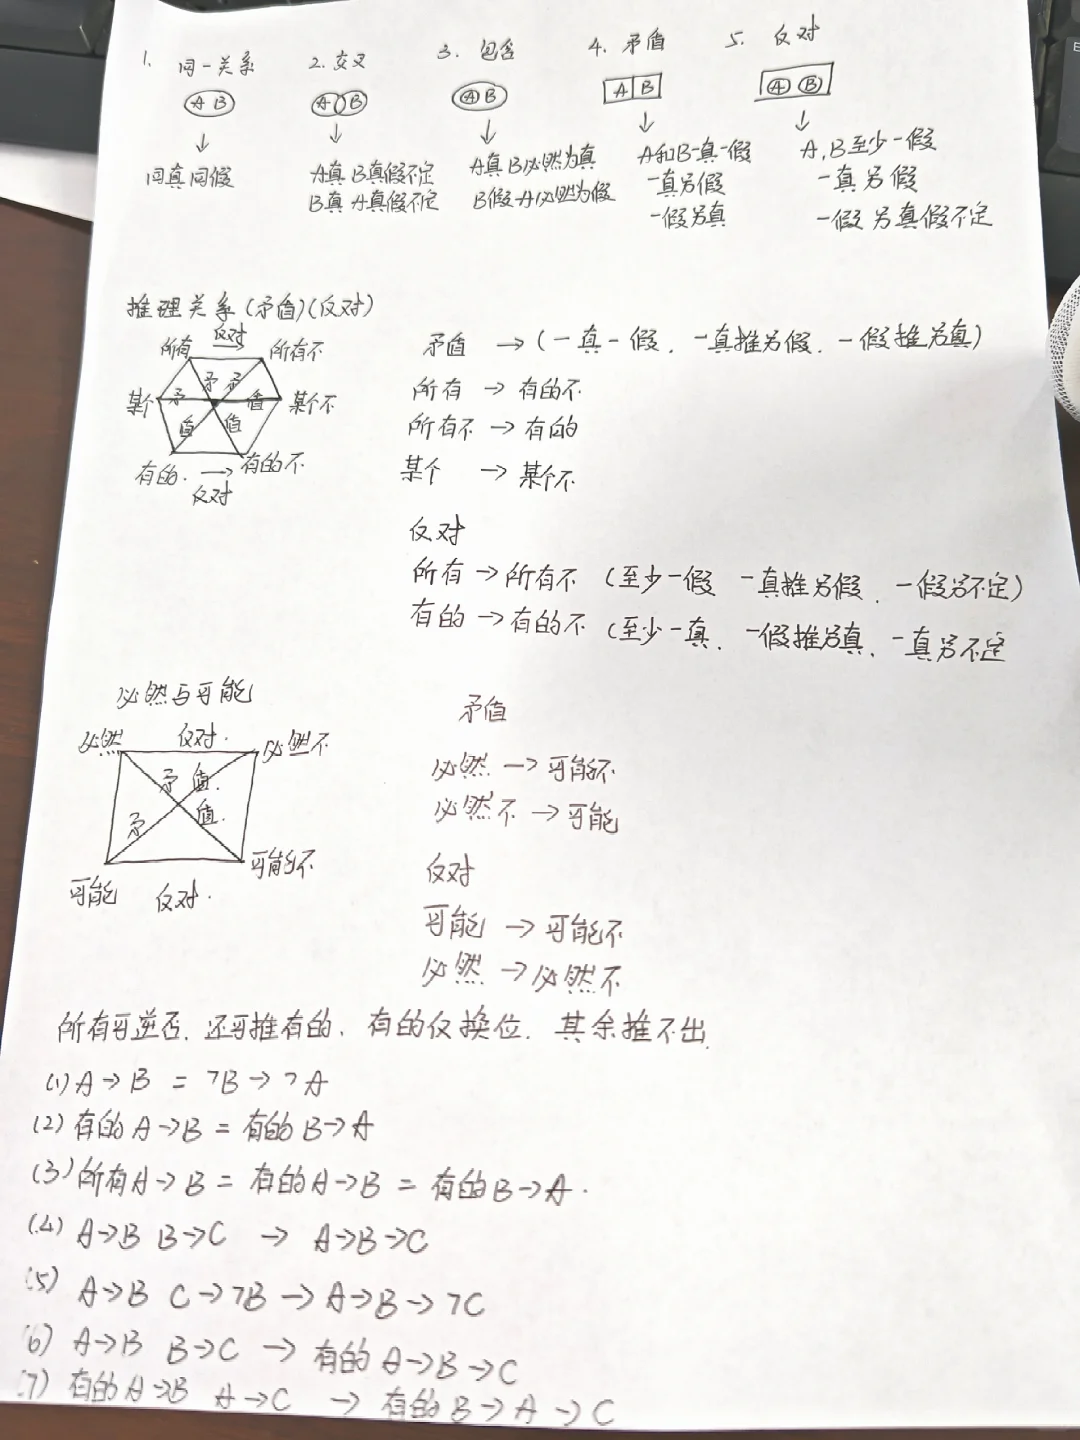 1. 同一关系 2. 交叉 3. 包含 4. 矛盾 5. 反对
A B A B A B A B A B
↓ ↓ ↓ ↓ ↓
同真同假 A真 B真假不定 A真 B必然为真 A和B一真一假 A,B至少一假
B真 A真假不定 B假 A必然为假 一真另假 一真另假
一假另真 一假另真假不定
推理关系(矛盾)(反对)
所有 反对→ 所有不
某个 矛 矛 矛 盾 某个不
盾 盾
有的. → 有的不
反对
矛盾 →(一真一假. 一真推另假. 一假推另真)
所有 → 有的不
所有不 → 有的
某个 → 某个不
反对
所有 → 所有不 (至少一假 一真推另假. 一假另不定)
有的 → 有的不 (至少一真. 一假推另真. 一真另不定
必然与可能
必然 反对. 必然不
矛 盾.
矛 盾.
可能 反对. 可能不
矛盾
必然 → 可能不
必然不 → 可能
反对
可能 → 可能不
必然 → 必然不
所有可逆否. 还可推有的. 有的仅换位. 其余推不出.
(1) A→B = ¬B→¬A
(2) 有的A→B = 有的B→A
(3) 所有A→B = 有的A→B = 有的B→A.
(4) A→B B→C → A→B→C
(5) A→B C→¬B → A→B→¬C
(6) A→B B→C → 有的A→B→C
(7) 有的A→B A→C → 有的B→A→C